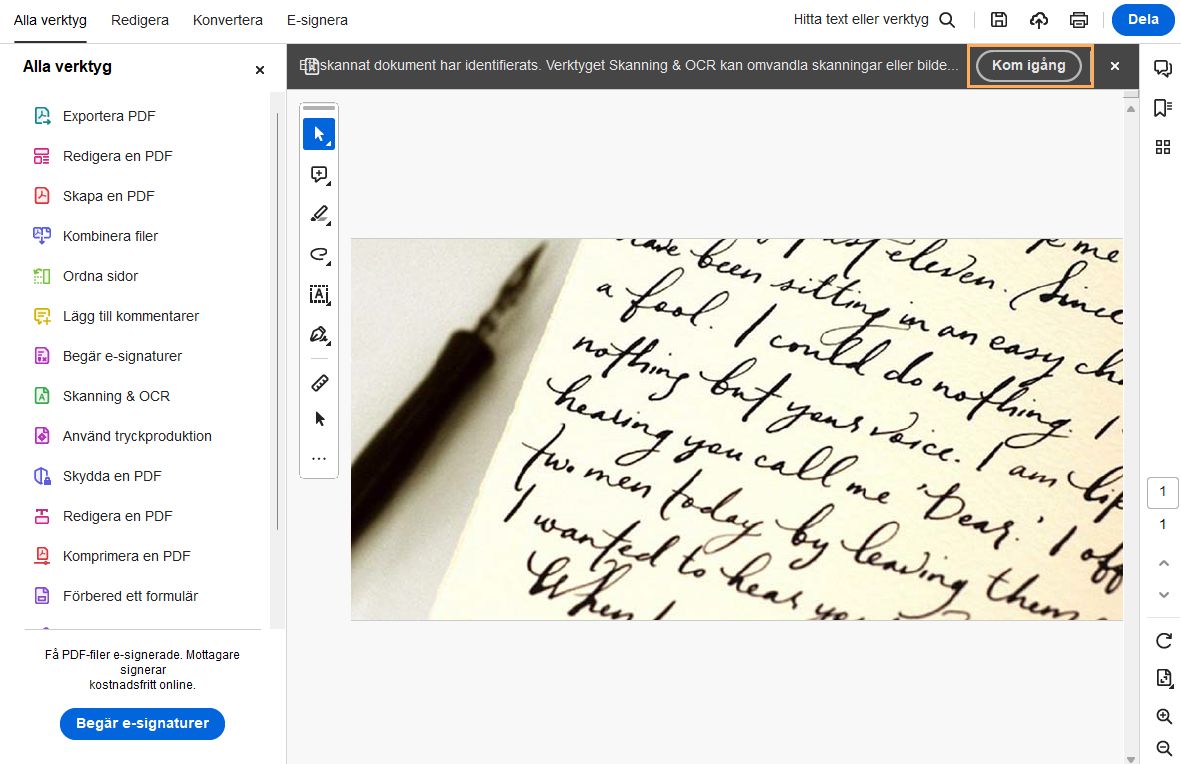 Alla verktyg
Redigera
Konvertera
E-signera
Hitta text eller verktyg
Dela
Alla verktyg
skannat dokument har identifierats. Verktyget Skanning & OCR kan omvandla skanningar eller bilde...
Kom igång
Exportera PDF
Redigera en PDF
Skapa en PDF
Kombinera filer
Ordna sidor
Lägg till kommentarer
Begär e-signaturer
Skanning & OCR
Använd tryckproduktion
Skydda en PDF
Redigera en PDF
Komprimera en PDF
Förbered ett formulär
Få PDF-filer e-signerade. Mottagare
signerar
kostnadsfritt online.
Begär e-signaturer
me
eleven. Since
have been sitting in an easy
a fool. I could do nothing. I
nothing but your voice. I am
hearing you call me 'Dear.' I
two men today by leaving them
I wanted to hear
When
1
1